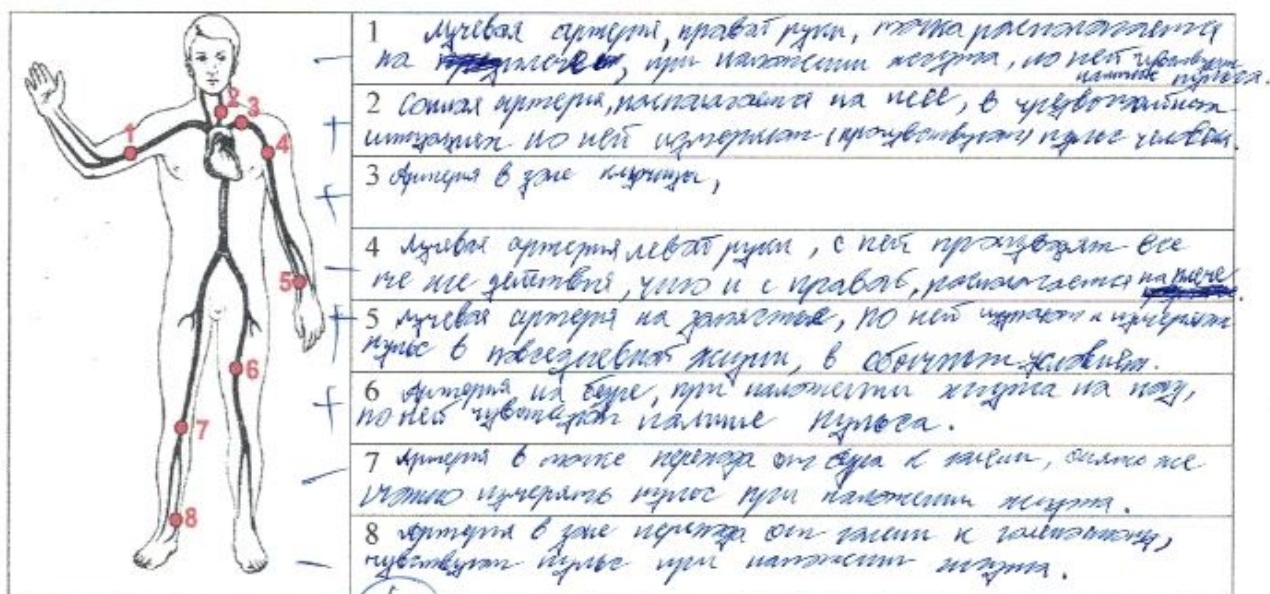 1 лучевая артерия, правой руки, точка располагается
на плече, при наложении жгута, по ней чувствуют
наличие пульса.
2 Сонная артерия, располагается на шее, в чрезвычайных
ситуациях по ней измеряют (прочувствуют) пульс человека.
3 Артерия в зоне ключицы,
4 лучевая артерия левой руки, с ней производят все
те же действия, что и с правой, располагается на плече.
5 лучевая артерия на запястье, по ней измеряют
пульс в повседневной жизни, в обычных условиях.
6 Артерия на бедре, при наложении жгута на ногу,
по ней чувствуют наличие пульса.
7 Артерия в точке перехода от бедра к голени, опять же
можно измерять пульс при наложении жгута.
8 Артерия в зоне перехода от голени к голеностопу,
чувствуют пульс при наложении жгута.
1
2
3
4
5
6
7
8